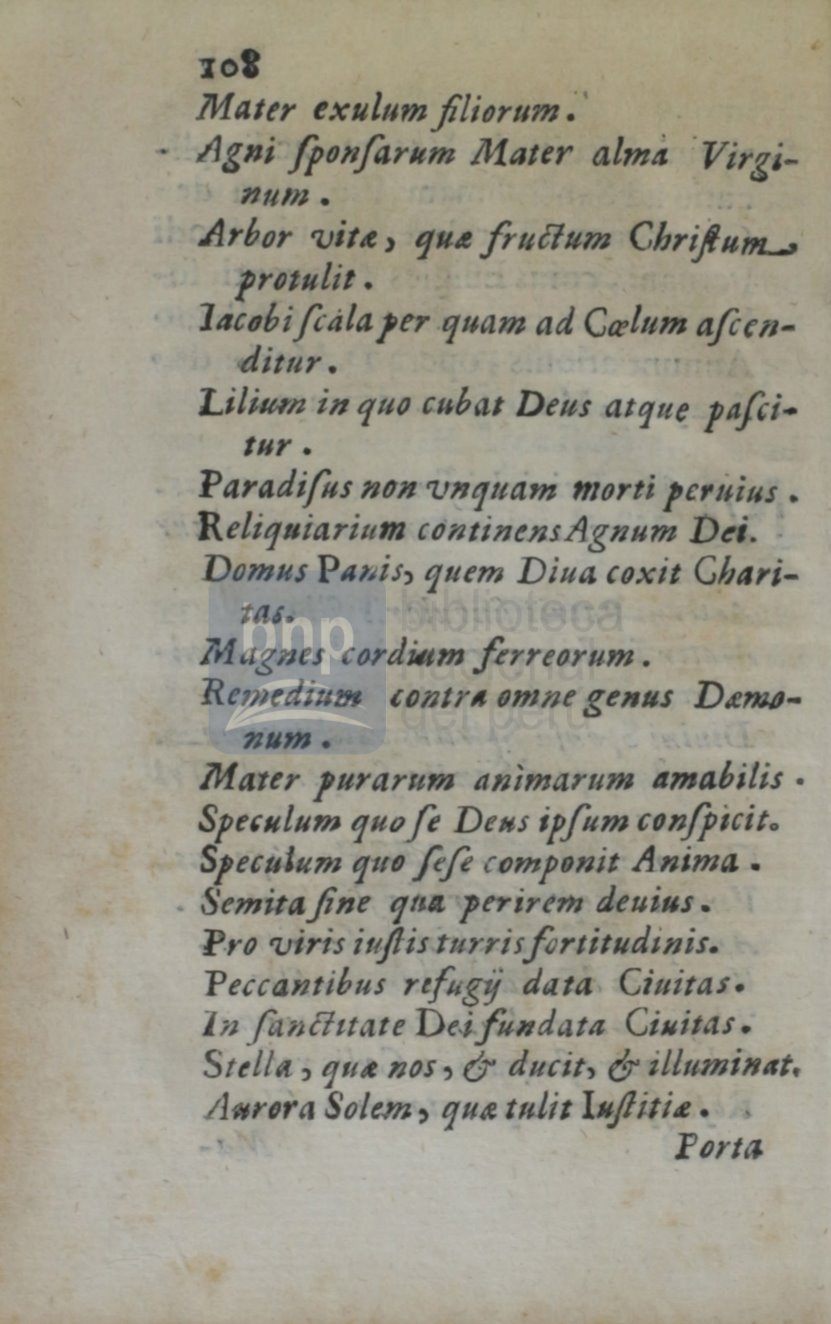 108
Mater exulum filiorum.
Agni ſponſarum Mater alma Virgi-
num.
Arbor vitæ, quæ fructum Chriſtum
protulit.
Iacobi ſcala per quam ad Cœlum aſcen-
ditur.
Lilium in quo cubat Deus atque paſci-
tur.
Paradiſus non vnquam morti peruius.
Reliquiarium continens Agnum Dei.
Domus Panis, quem Diua coxit Chari-
tas.
Magnes cordium ferreorum.
Remedium contra omne genus Dæmo-
num.
Mater purarum animarum amabilis.
Speculum quo ſe Deus ipſum conſpicit.
Speculum quo ſeſe componit Anima.
Semita ſine qua perirem deuius.
Pro viris iuſtis turris fortitudinis.
Peccantibus refugij data Ciuitas.
In ſanctitate Dei fundata Ciuitas.
Stella, quæ nos, & ducit, & illuminat.
Aurora Solem, quæ tulit Iuſtitiæ.
Porta
bnp
biblioteca
nacional
del perú